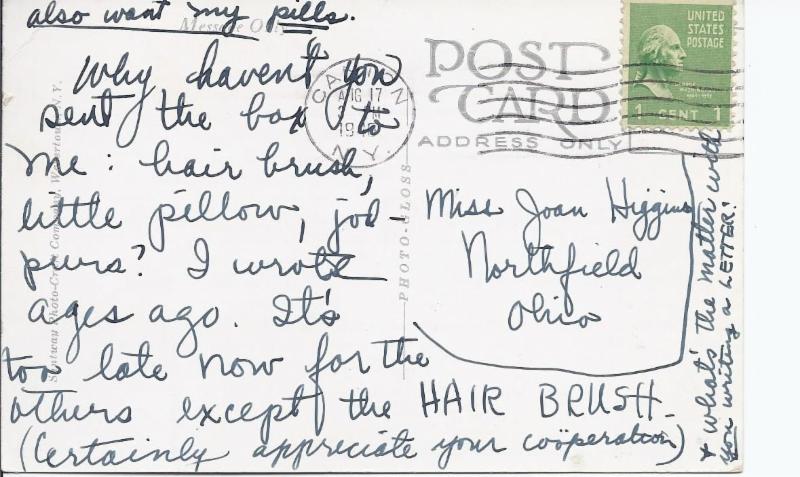 also want my pills.
Message Only
Why haven't you
sent the box to
me: hair brush,
little pillow, jod-
purs? I wrote
ages ago. It's
too late now for the
others except the HAIR BRUSH.
(Certainly appreciate your coöperation)
& what's the matter with
you writing a LETTER?
POST
CARD
ADDRESS ONLY
Miss Joan Higgins
Northfield
Ohio
UNITED
STATES
POSTAGE
1 CENT 1
CANTON
AUG 17
N.Y.
PHOTO-GLOSS
Santway Photo-Craft Company, Watertown, N. Y.